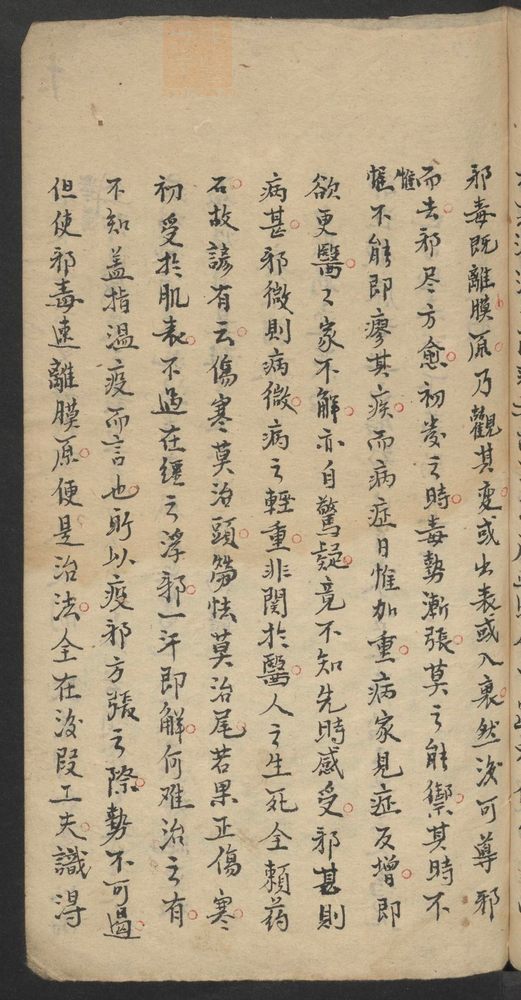 邪毒既離膜原乃觀其变或出表或入裏然後可導邪
而去邪尽方愈初发之時毒勢漸張莫之能禦其時不
惟不能即瘳其疾而病症日惟加重病家見症反增即
欲更醫々家不解亦自驚疑竟不知先時感受邪甚則
病甚邪微則病微病之輕重非関扵醫人之生死全賴药
石故諺有云傷寒莫治頭勞怯莫治尾若果正傷寒
初受扵肌表不過在經之浮邪一汗即解何难治之有
不知盖指温疫而言也所以疫邪方張之際勢不可遏
但使邪毒速離膜原便是治法全在後段工夫識得